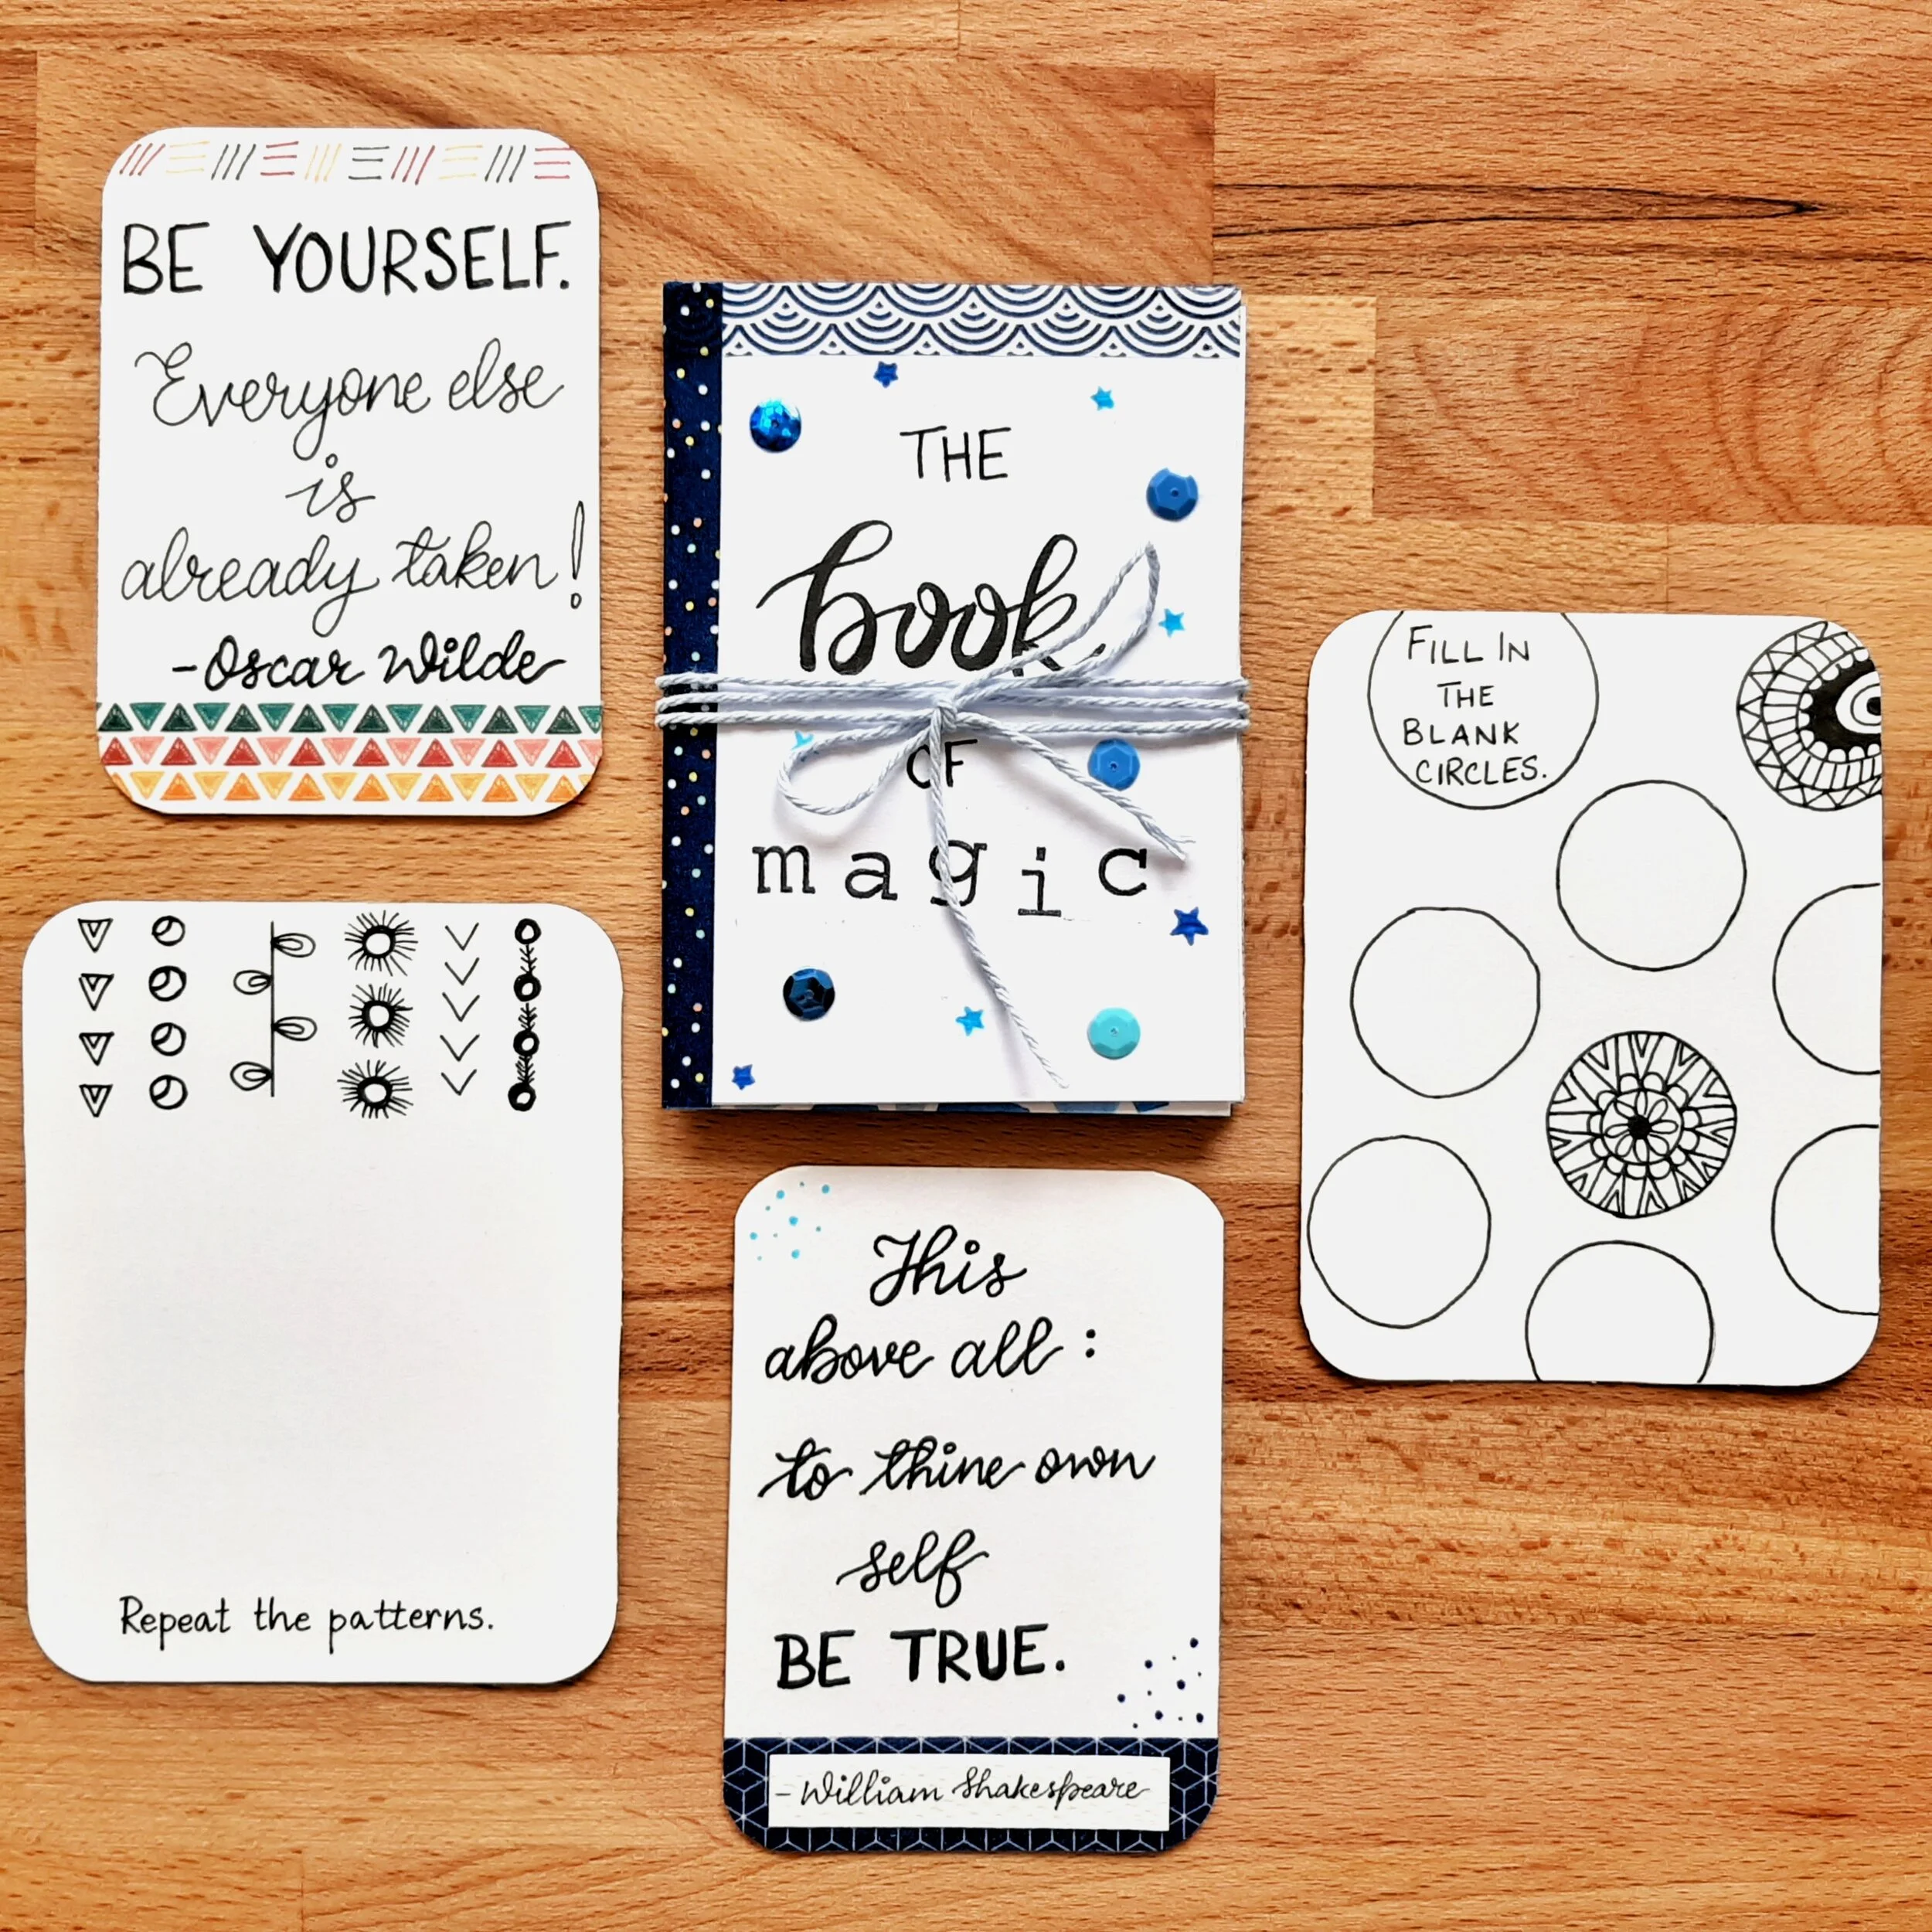 BE YOURSELF.
Everyone else
is
already taken!
-Oscar Wilde
THE
book
OF
magic
FILL IN
THE
BLANK
CIRCLES.
Repeat the patterns.
This
above all:
to thine own
self
BE TRUE.
- William Shakespeare